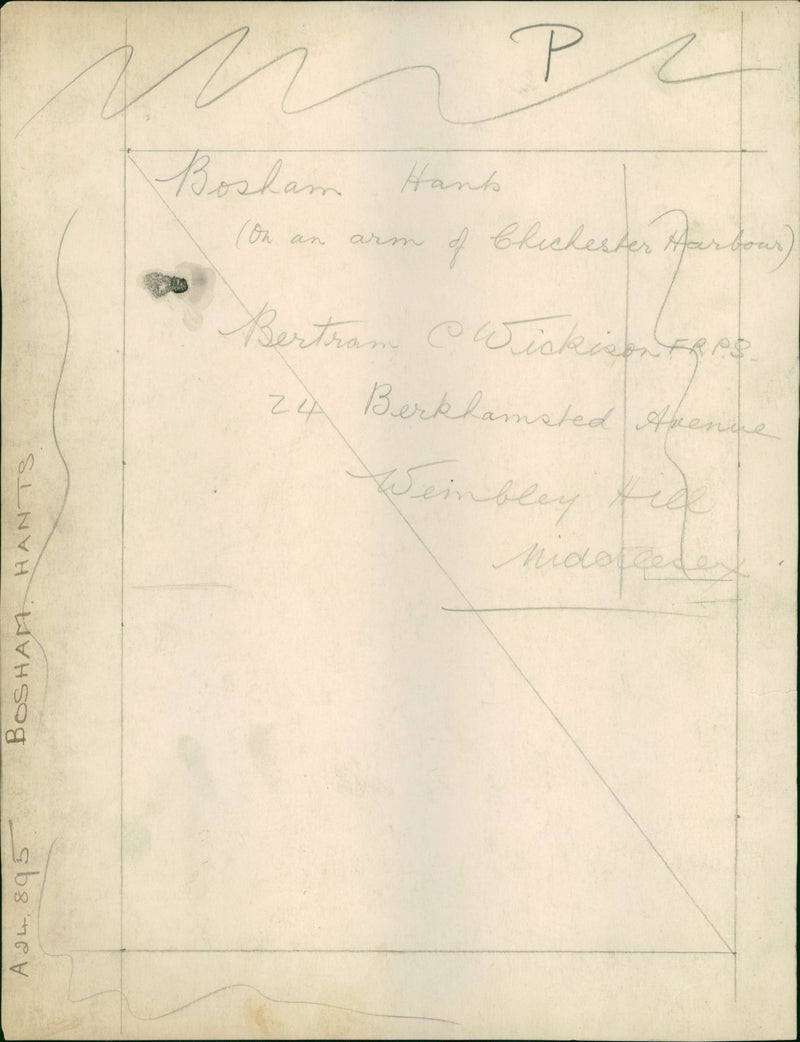 P
Bosham Hants
(On an arm of Chichester Harbour)
Bertram C Wickison F.R.P.S.
24 Berkhamsted Avenue
Wembley Hill
Middlesex
A24.895 BOSHAM. HANTS.